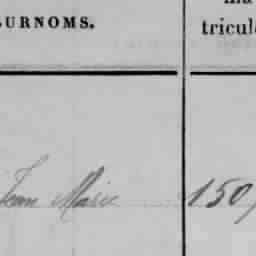 URNOMS.
tricul
Jean Marie 150